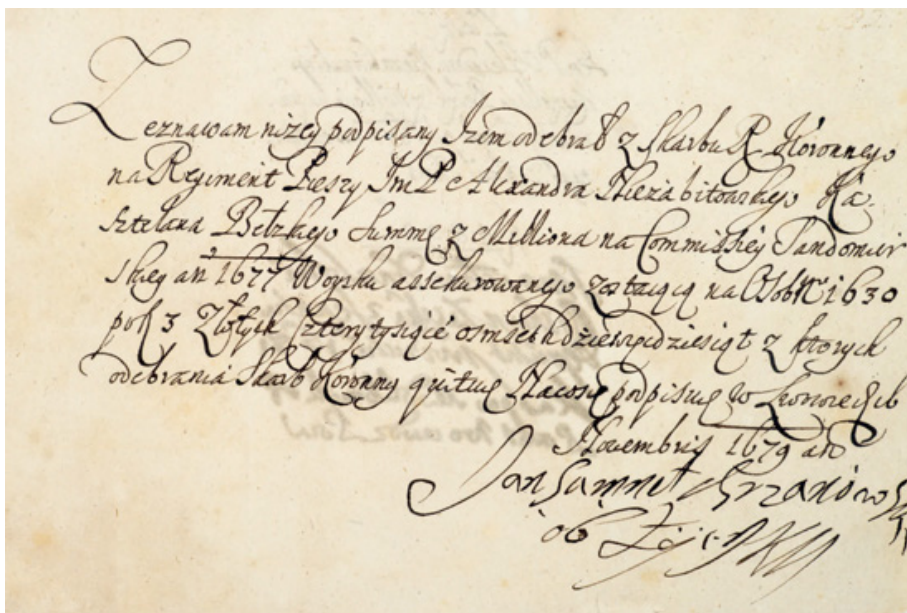 Zeznawam nizey podpisany Izem odebrał z Skarbu R. Koronnego
na Regiment Pieszy Im P Alexandra Niezabitowskiego Ka-
sztelana Bełzkiego Summę z Milliona na Commissiey Sandomir
skiey an 1677 Woysku assekurowanego na Osob Nro 1630
po fl 3 Złotych Cztery tysiące osmset dziewięcdziesiąt z ktorych
odebrania Skarb Koronny quituię Na co się podpisuię w Lwowie
Novembris 1679 an
Jan Samuel Chrzanows